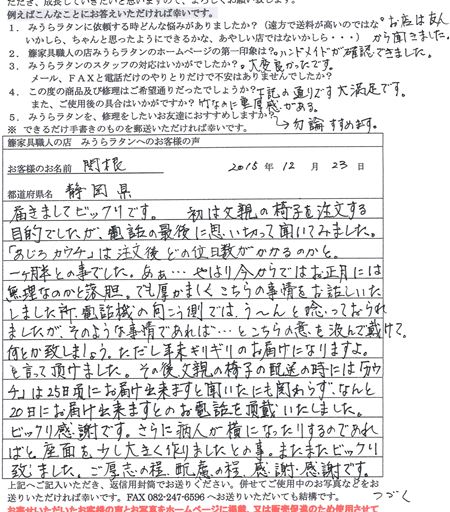 例えばこんなことにお答えいただければ幸いです。
1. みうらラタンに依頼する時どんな悩みがありましたか?(遠方で送料が高いのではな
いかしら、ちゃんと思ったようにできるかな、あやしい店ではないかしら・・・)
お店は友人から聞きました。
2. 籐家具職人の店みうらラタンのホームページの第一印象は?
ハンドメイドが確認できました。
3. みうらラタンのスタッフの対応はいかがでしたか?
大変良かったです。
メール、FAXと電話だけのやりとりだけで不安はありませんでしたか?
4. この度の商品及び修理はご希望通りだったでしょうか?
下記の通りです大満足です。
また、ご使用後の具合はいかがですか?
竹なのに重厚感がある。
5. みうらラタンを、修理をしたいお友達におすすめしますか?
→勿論すすめます。
※できるだけ手書きのものを郵送いただければ幸いです。
籐家具職人の店 みうらラタンへのお客様の声
お客様のお名前 関根 2015年12月23日
都道府県名 静岡県
届きましてビックリです。 初は父親の椅子を注文する
目的でしたが、電話の最後に思い切って聞いてみました。
「あじろカウチ」は注文後どの位日数がかかるのかと。
一ヶ月半との事でした。あぁ…やはり今からではお正月には
無理なのかと落胆。でも厚かましくこちらの事情をお話しいた
しました所 電話機の向こう側では、う～んと唸っておられ
ましたが、そのような事情であれば…とこちらの意を汲んで戴けて、
何とか致しましょう。ただし年末ギリギリのお届けになりますよ。
と言って頂けました。その後父親の椅子の配送の時には「カウ
チ」は25日頃にお届け出来ますと聞いたにも関わらず、なんと
20日にお届け出来ますとのお電話を頂戴いたしました。
ビックリ感謝です。さらに病人が横になったりするのであれ
ばと、座面を少し大きく作りましたとの事。またまたビックリ
致しました。ご厚志の程、配慮の程、感謝・感謝です。
上記へご記入いただき、返信用封筒でお送りください。併せてご使用中のお写真などをお
送りいただければ幸いです。FAX 082-247-6596 へお送りいただいても結構です。
つづく
お寄せいただいたお客様の声とお写真をホームページに掲載、又は販売促進のため使用させて